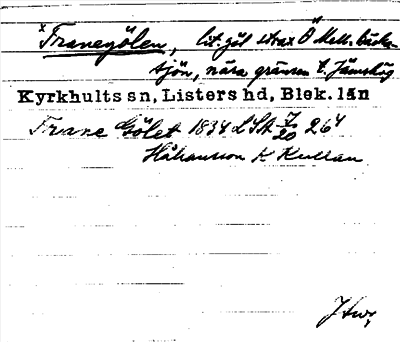 x Franegölen, lit. göl strax Ö Mell. bäcka-
sjön, nära gränsen t. Jämshög
Kyrkhults sn, Listers hd, Blek. län
Frane Gölet 1834 LSA 264
Håkansson K Kullan